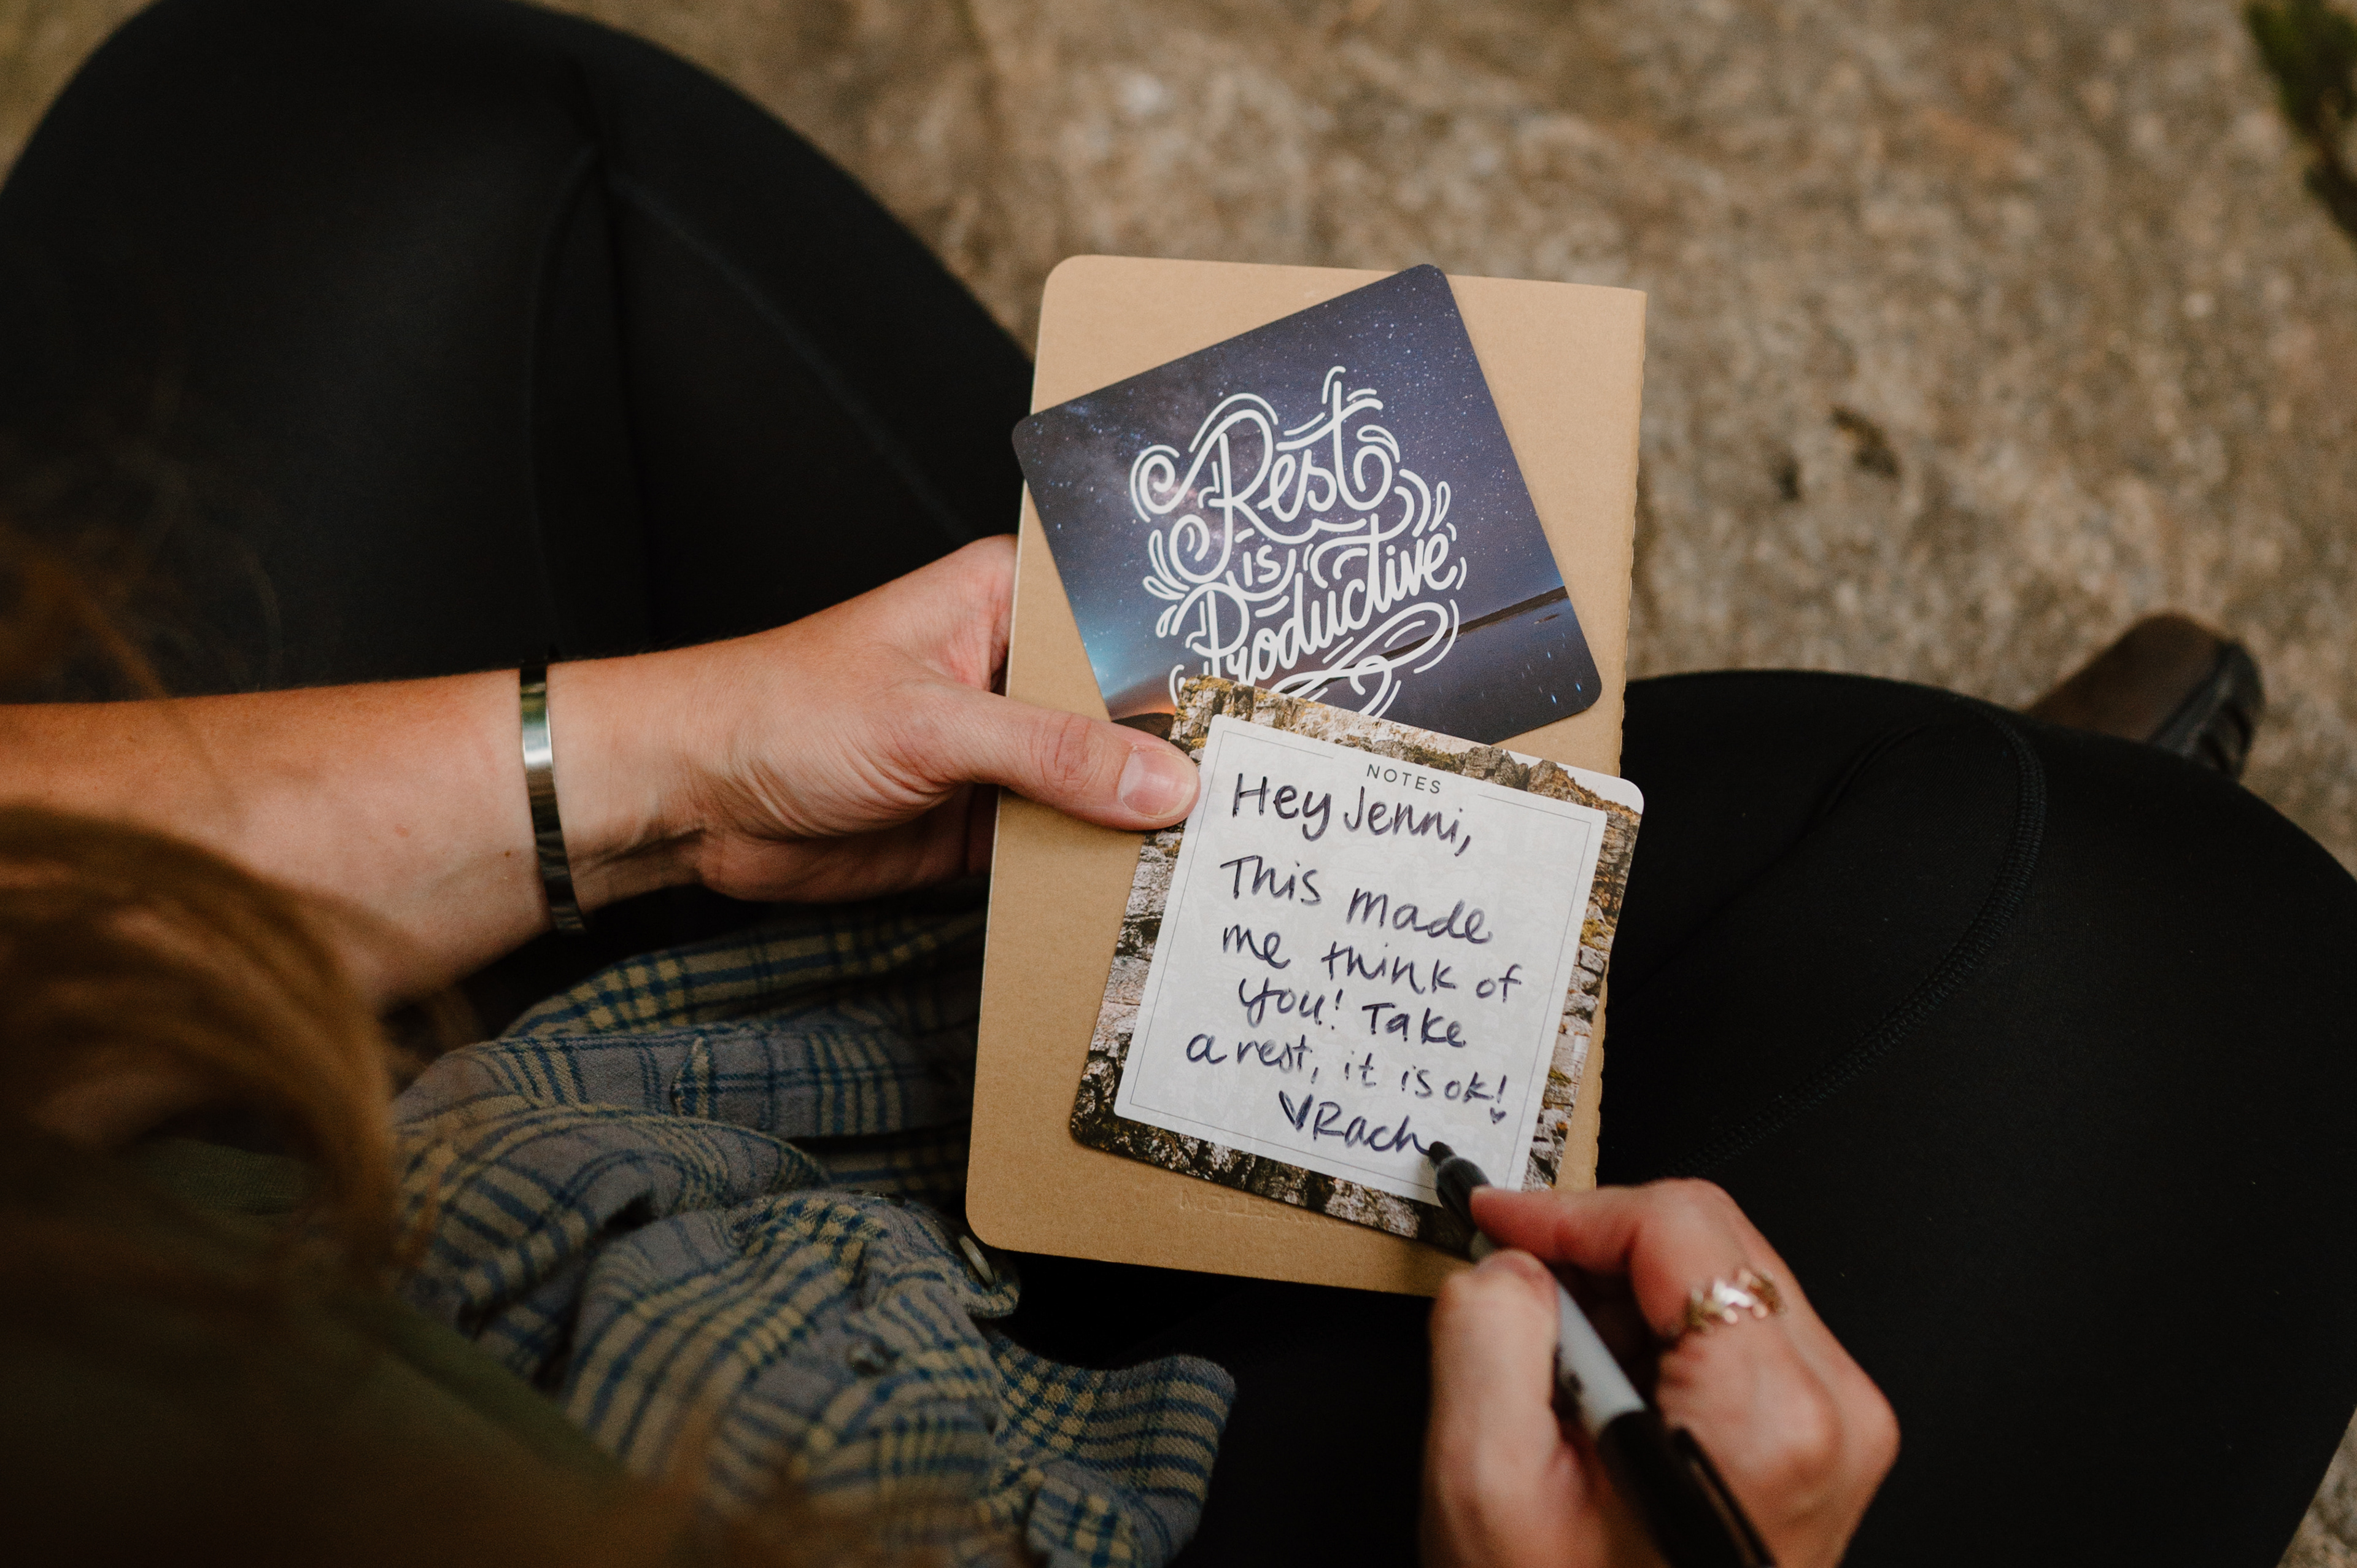 Rest
is
Productive
NOTES
Hey Jenni,
This made
me think of
you! Take
a rest, it is ok!
♥Rach